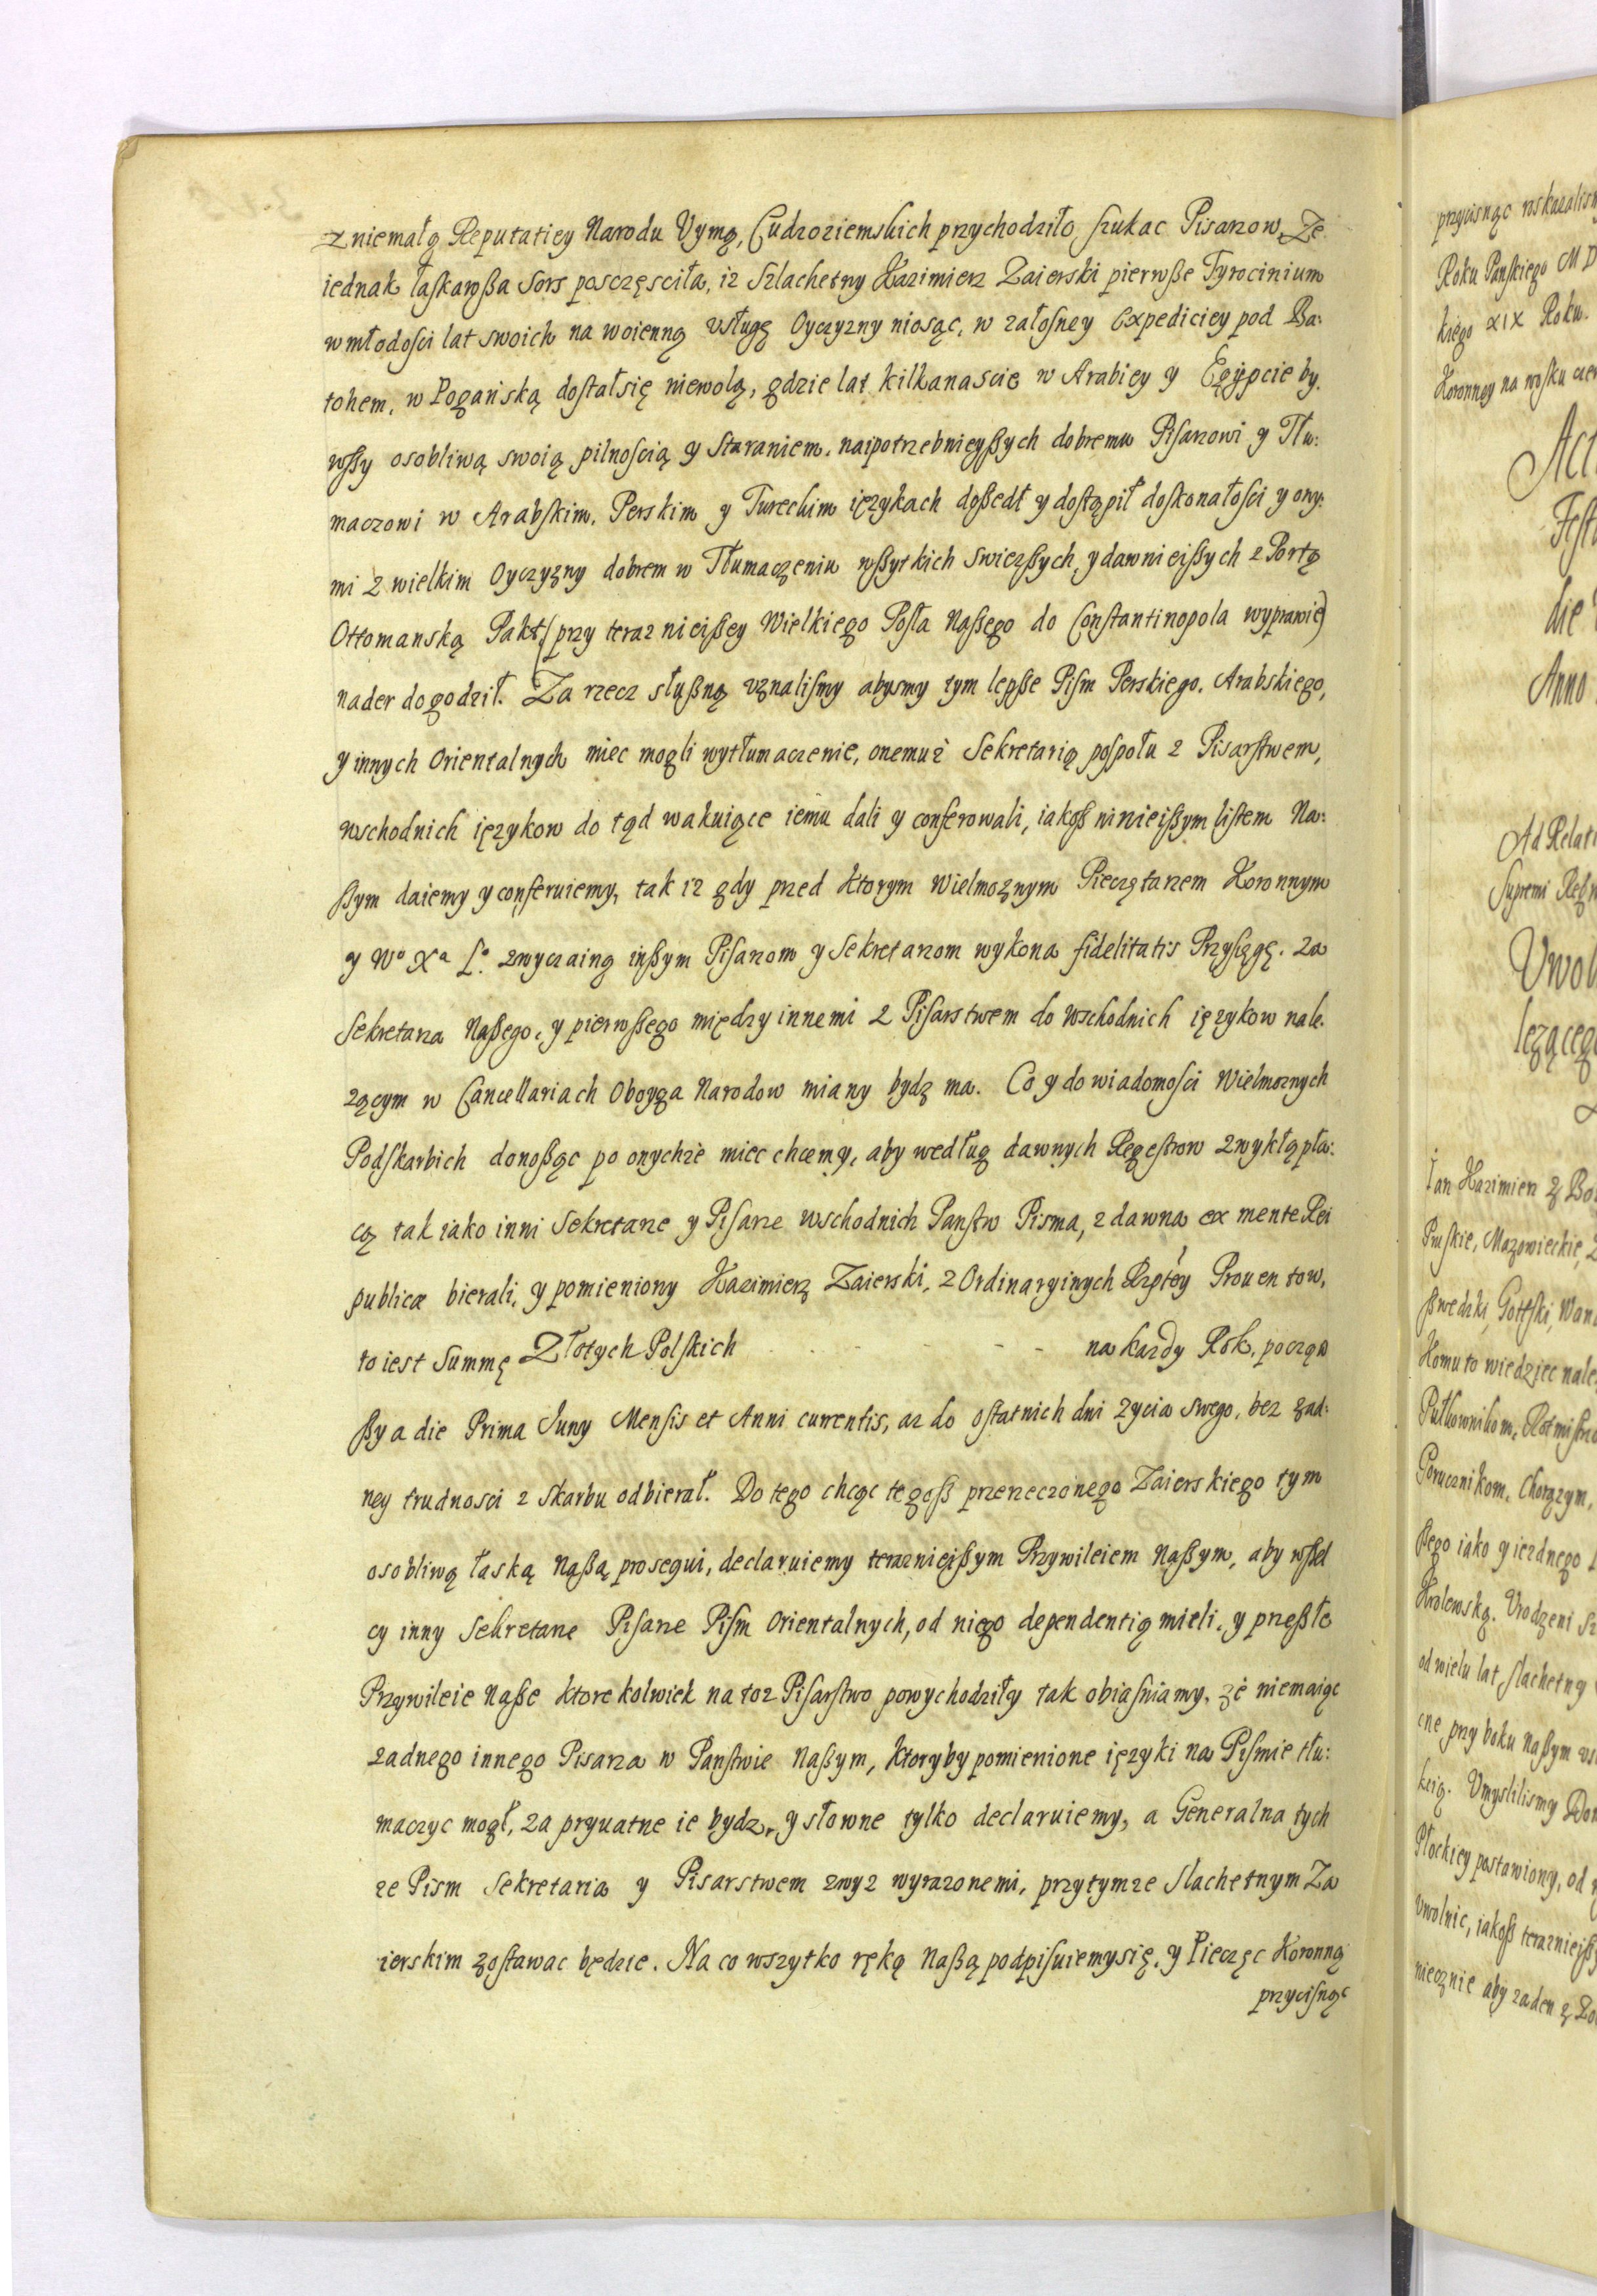 z niemałą Reputatiey Narodu Vymą, Cudzoziemskich przychodziło szukac Pisarzow, Ze
iednak łaskawßa Sors posczęsciła, iz Szlachetny Kazimierz Zaierski pierwße Tyrocinium
w młodości lat swoich na woienną vsługę Oyczyzny niosąc, w załosney Expediciey pod Ba:
tohem, w Pogańską dostał się niewolą, gdzie lat kilkanascie w Arabiey y Egÿpcie by.
wßy osobliwą swoią pilnoscią y Staraniem, naipotrzebnieyßych dobremu Pisarzowi y Tłu:
maczowi w Arabskim, Perskim y Tureckim ięzykach doßedł y dostąpił doskonałości y ony:
mi z wielkim Oyczyzny dobrem w Tłumaczeniu wßytkich swiezßych, y dawnieißych z Portą
Ottomanską Pakt, (przy teraznieißey Wielkiego Posła Naßego do Constantinopola wyprawie)
nader dogodził. Za rzecz słußną vznalismy abysmy tym lepße Pism Perskiego, Arabskiego,
y innych Orientalnych miec mogli wytłumaczenie, onemuż Sekretarią pospołu z Pisarstwem,
wschodnich ięzykow do tąd wakuiące iemu dali y conferowali, iakoß ninieißym listem Na:
ßym daiemy y conferuiemy, tak iz gdy przed ktorym Wielmoznym Pieczętarzem Koronnym
y Wo Xa Lo. zwyczaing inßym Pisarzom y Sekretarzom wykona fidelitatis Przysięgę. Za
Sekretarza Naßego, y pierwßego między innemi z Pisarstwem do Wschodnich ięzykow nale.
zącym w Cancellariach Oboyga Narodow miany bydz ma. Co y do wiadomości Wielmoznych
Podskarbich donoßąc po onychże miec chcemy, aby według dawnych Regestrow zwykłą pła:
cą tak iako inni Sekretarze y Pisarze wschodnich Panstw Pisma, z dawna ex mente Rei
publicæ bierali, y pomieniony Kazimierz Zaierski, z Ordinaryinych Rzptey Prouentow,
to iest Summę Złotych Polskich - - - - na kazdy Rok, począw
ßy a die Prima Juny Mensis et Anni currentis, az do ostatnich dni zycia swego, bez zad:
ney trudnosci z Skarbu odbierał. Do tego chcąc tegoß przerzeczonego Zaierskiego tym
osobliwą łaską Naßą prosequi, declaruiemy teraznieißym Przywileiem Naßym, aby wßel
cy inny Sekretarze Pisarze Pism Orientalnych, od niego dependentią mieli, y przeßłe
Przywileie Naße ktore kolwiek na toz Pisarstwo powychodziły tak obiasniamy, że niemaiąc
zadnego innego Pisarza w Panstwie Naßym, ktoryby pomienione ięzyki na Pismie tłu:
maczyc mogł, za pryuatne ie bydz, y słowne tylko declaruiemy, a Generalna tych
ze Pism Sekretaria y Pisarstwem zwyz wyrazonemi, przytymze Slachetnym Za
ierskim zostawac będzie. Na co wszytko ręką Naßą podpisuiemysię, y Pieczęc Koronną
przycisnąc
przycisnąc roskazalism
Roku Panskiego MD
kiego XIX Roku.
Koronney na wosku czer
Act
Fest
die
Anno
Ad Relati
Supremi Reg
Vwol
lezącego
Ian Kazimierz z Bo
Pruskie, Mazowieckie, Z
ßwedzki, Gottski, Wan
Komu to wiedziec nale
Pułkownikom, Rotmistrz
Porucznikom, Chorązym,
ßego iako y iezdnego
Krolewską. Vrodzeni Sz
od wielu lat slachetny
cne przy boku Naßym vs
kzią. Vmyslilismy Dom
Płockiey postawiony, od
vwolnic, iakoß teraznieiß
niecznie aby zaden z Zo